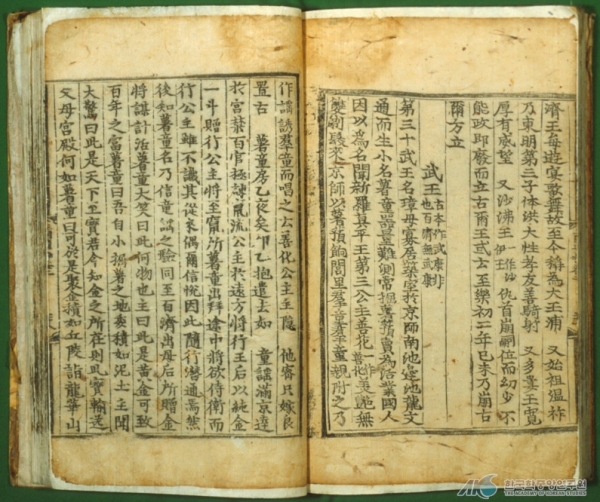 濟王每遊宴歌舞故至今稱為大王浦 又始祖溫祚
乃東明第三子体洪大性孝友善騎射 又多婁王寬
厚有威望 又沙沸王一作沙伊王仇首崩嗣位而幼少不
能政即廢而立古爾王或云至樂初二年己未乃崩古
爾方立
武王古本作武康非也百濟無武康
第三十武王名璋母寡居築室於京師南池邊池龍交
通而生小名薯童器量難測常掘薯蕷賣為活業國人
因以為名聞新羅真平王第三公主善花一作善化美艷無
雙剃髮來京師以薯蕷餉閭里羣童羣童親附之乃
作謠誘羣童而唱之云善化公主主隱 他密只嫁良
置古 薯童房乙夜矣卯乙抱遣去如 童謠滿京達
於宮禁百官極諫竄流公主於遠方將行王后以純金
一斗贈行公主將至竄所薯童出拜途中將欲侍衛而
行公主雖不識其從來偶爾信悅因此隨行潛通焉然
後知薯童名乃信童謠之驗同至百濟出母后所贈金
將謀計活薯童大笑曰此何物也主曰此是黃金可致
百年之富薯童曰吾自小掘薯之地委積如泥土主聞
大驚曰此是天下至寶君今知金之所在則此寶輸送
父母宮殿何如薯童曰可於是聚金積如丘陵詣龍華山
한국학중앙연구원